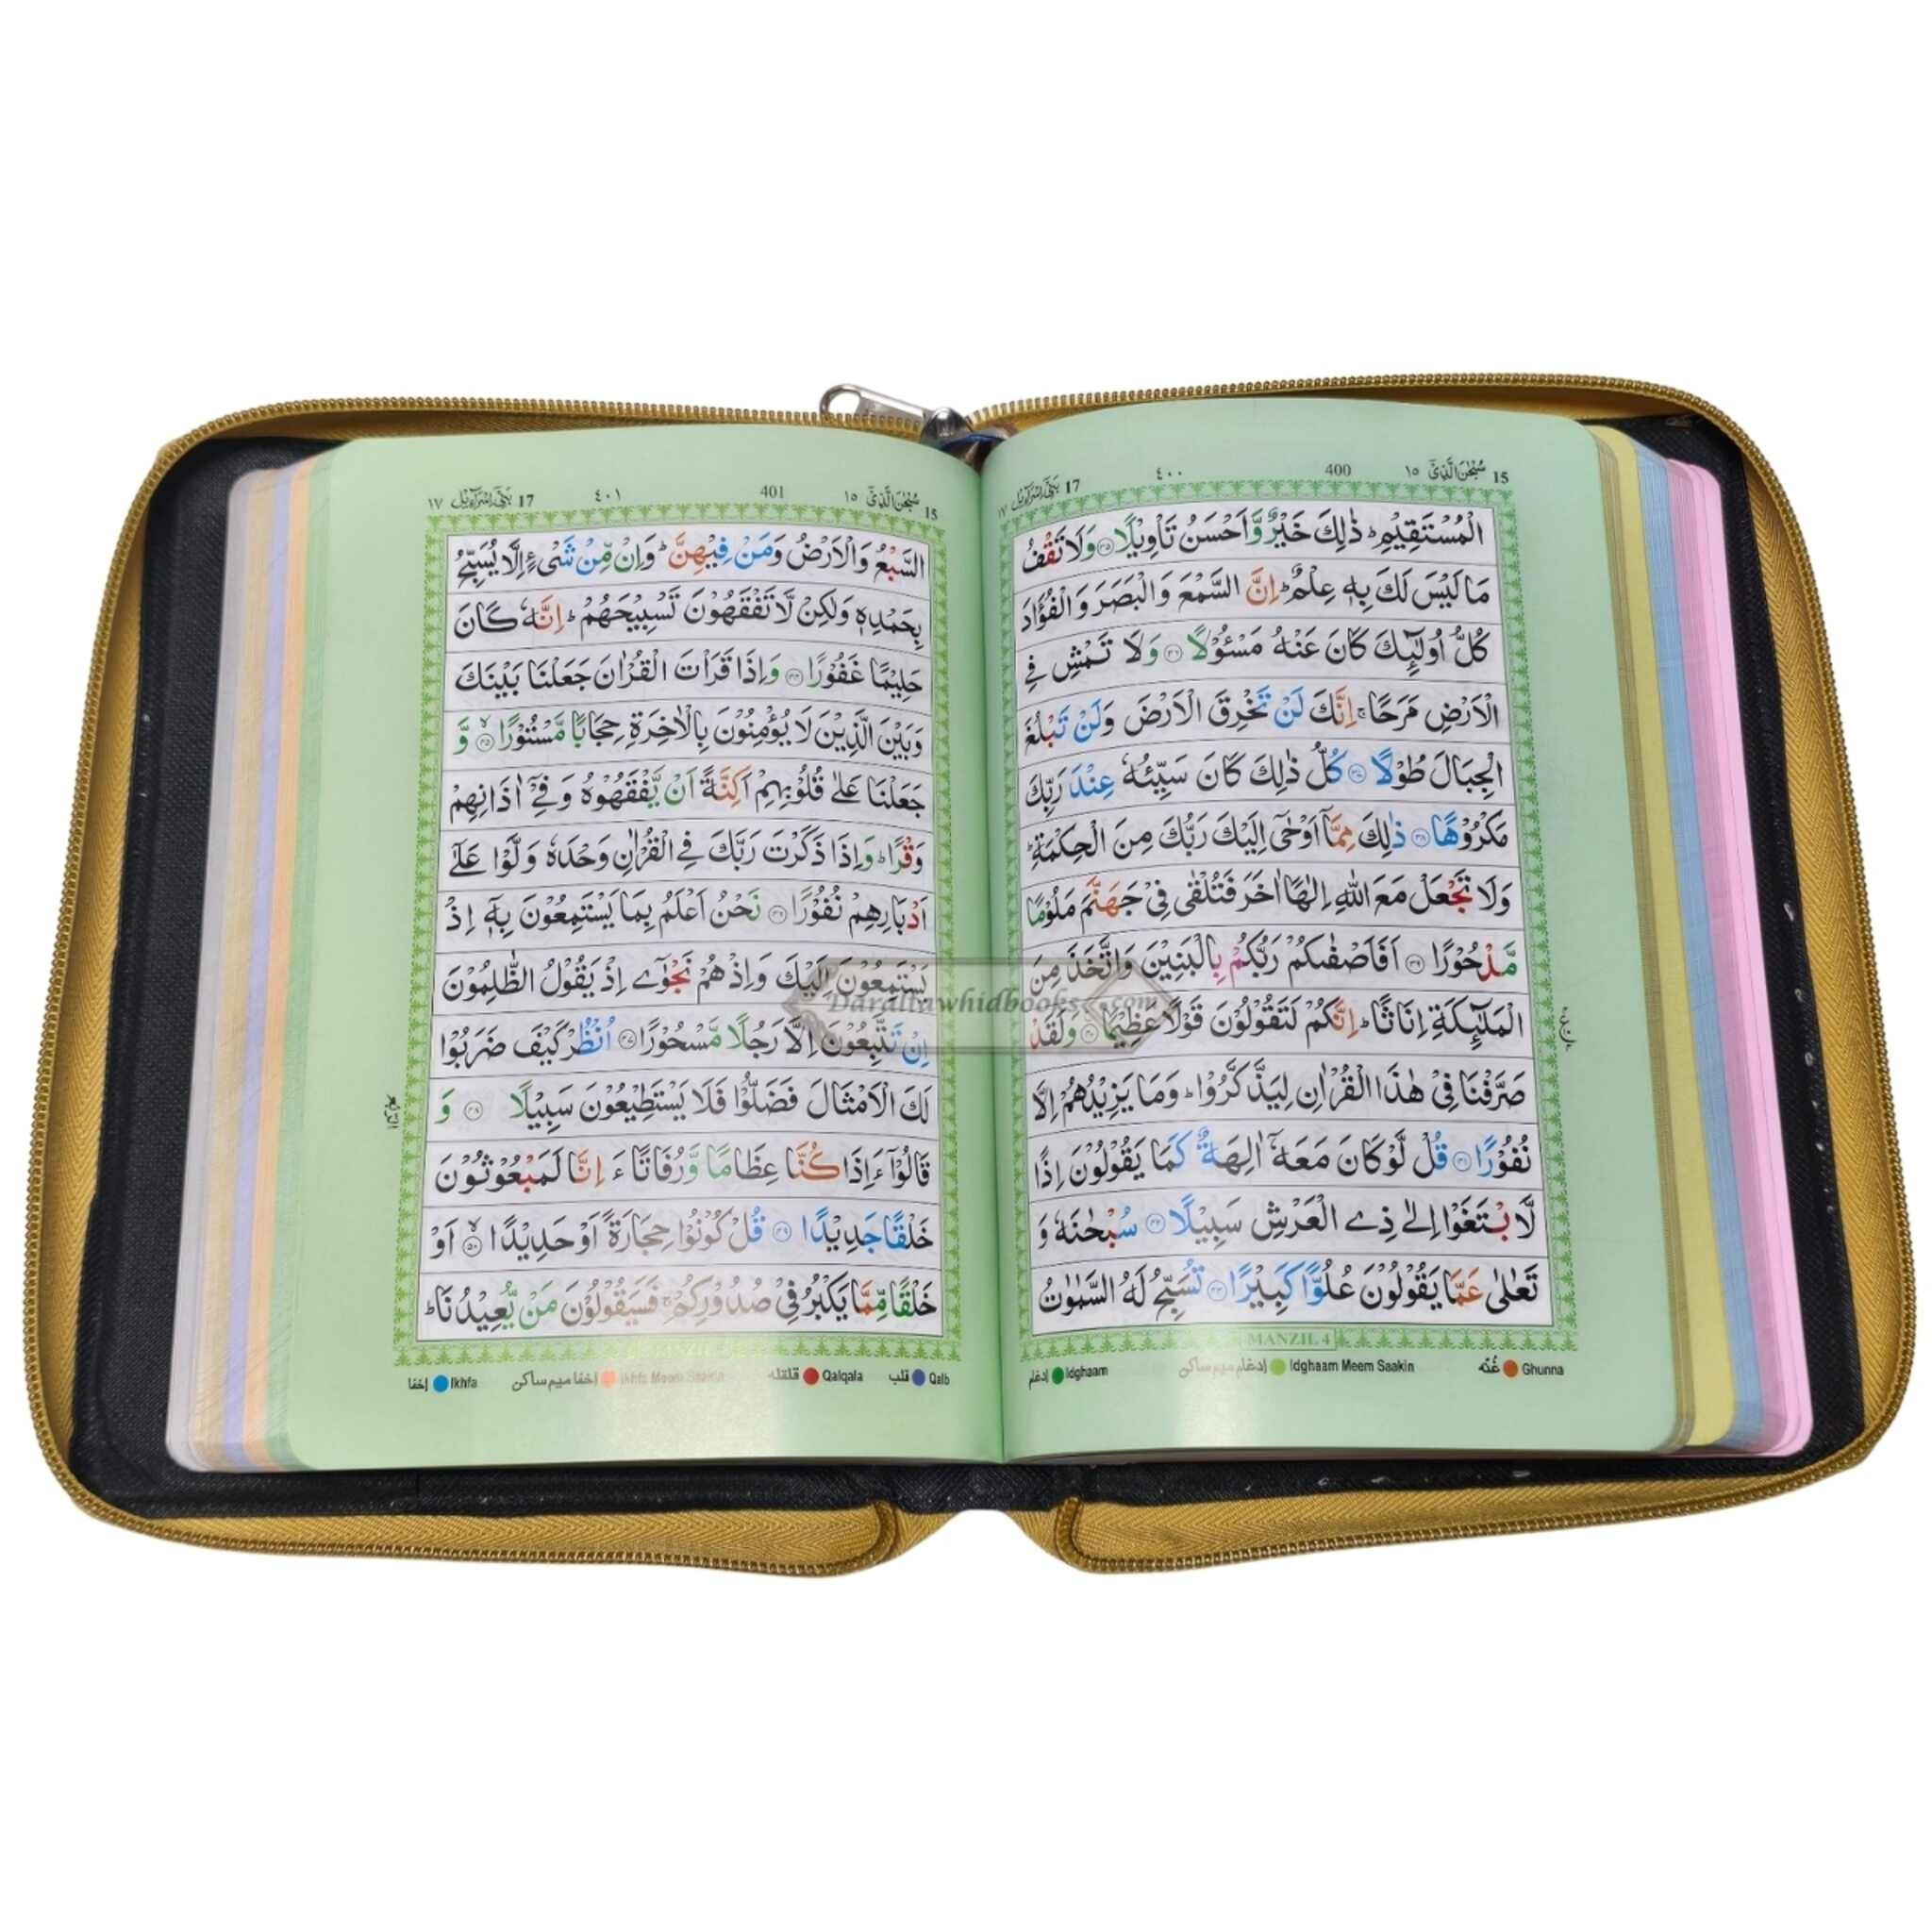 15 سُبْحٰنَ الَّذِیْۤ ١٥
400
٤٠٠
17 بَنِیْۤ اِسْرَآءِیْل ١٧
الْمُسْتَقِیْمِؕ ذٰلِكَ خَیْرٌ وَّاَحْسَنُ تَاْوِیْلًا ۝٣٥ وَلَا تَقْفُ
مَا لَیْسَ لَكَ بِهٖ عِلْمٌؕ اِنَّ السَّمْعَ وَالْبَصَرَ وَالْفُؤَادَ
كُلُّ اُولٰٓئِكَ كَانَ عَنْهُ مَسْـُٔوْلًا ۝٣٦ وَلَا تَمْشِ فِی
الْاَرْضِ مَرَحًاۚ اِنَّكَ لَنْ تَخْرِقَ الْاَرْضَ وَلَنْ تَبْلُغَ
الْجِبَالَ طُوْلًا ۝٣٧ كُلُّ ذٰلِكَ كَانَ سَیِّئُهٗ عِنْدَ رَبِّكَ
مَكْرُوْهًا ۝٣٨ ذٰلِكَ مِمَّاۤ اَوْحٰۤی اِلَیْكَ رَبُّكَ مِنَ الْحِكْمَةِؕ
وَلَا تَجْعَلْ مَعَ اللّٰهِ اِلٰهًا اٰخَرَ فَتُلْقٰی فِیْ جَهَنَّمَ مَلُوْمًا
مَّدْحُوْرًا ۝٣٩ اَفَاَصْفٰىكُمْ رَبُّكُمْ بِالْبَنِیْنَ وَاتَّخَذَ مِنَ
الْمَلٰٓئِكَةِ اِنَاثًاؕ اِنَّكُمْ لَتَقُوْلُوْنَ قَوْلًا عَظِیْمًا ۝٤٠ وَلَقَدْ
صَرَّفْنَا فِیْ هٰذَا الْقُرْاٰنِ لِیَذَّكَّرُوْاؕ وَمَا یَزِیْدُهُمْ اِلَّا
نُفُوْرًا ۝٤١ قُلْ لَّوْ كَانَ مَعَهٗۤ اٰلِهَةٌ كَمَا یَقُوْلُوْنَ اِذًا
لَّابْتَغَوْا اِلٰی ذِی الْعَرْشِ سَبِیْلًا ۝٤٢ سُبْحٰنَهٗ وَ
تَعٰلٰی عَمَّا یَقُوْلُوْنَ عُلُوًّا كَبِیْرًا ۝٤٣ تُسَبِّحُ لَهُ السَّمٰوٰتُ
MANZIL 4
Ghunna غُنّه
Idghaam Meem Saakin إدغام میم ساکن
Idghaam إدغام
15 سُبْحٰنَ الَّذِیْۤ ١٥
401
٤٠١
17 بَنِیْۤ اِسْرَآءِیْل ١٧
السَّبْعُ وَالْاَرْضُ وَمَنْ فِیْهِنَّؕ وَاِنْ مِّنْ شَیْءٍ اِلَّا یُسَبِّحُ
بِحَمْدِهٖ وَلٰكِنْ لَّا تَفْقَهُوْنَ تَسْبِیْحَهُمْؕ اِنَّهٗ كَانَ
حَلِیْمًا غَفُوْرًا ۝٤٤ وَاِذَا قَرَاْتَ الْقُرْاٰنَ جَعَلْنَا بَیْنَكَ
وَبَیْنَ الَّذِیْنَ لَا یُؤْمِنُوْنَ بِالْاٰخِرَةِ حِجَابًا مَّسْتُوْرًا ۝٤٥ وَّ
جَعَلْنَا عَلٰی قُلُوْبِهِمْ اَكِنَّةً اَنْ یَّفْقَهُوْهُ وَفِیْۤ اٰذَانِهِمْ
وَقْرًاؕ وَاِذَا ذَكَرْتَ رَبَّكَ فِی الْقُرْاٰنِ وَحْدَهٗ وَلَّوْا عَلٰۤی
اَدْبَارِهِمْ نُفُوْرًا ۝٤٦ نَحْنُ اَعْلَمُ بِمَا یَسْتَمِعُوْنَ بِهٖۤ اِذْ
یَسْتَمِعُوْنَ اِلَیْكَ وَاِذْ هُمْ نَجْوٰۤی اِذْ یَقُوْلُ الظّٰلِمُوْنَ
اِنْ تَتَّبِعُوْنَ اِلَّا رَجُلًا مَّسْحُوْرًا ۝٤٧ اُنْظُرْ كَیْفَ ضَرَبُوْا
لَكَ الْاَمْثَالَ فَضَلُّوْا فَلَا یَسْتَطِیْعُوْنَ سَبِیْلًا ۝٤٨ وَ
قَالُوْۤا ءَاِذَا كُنَّا عِظَامًا وَّرُفَاتًا ءَاِنَّا لَمَبْعُوْثُوْنَ
خَلْقًا جَدِیْدًا ۝٤٩ قُلْ كُوْنُوْا حِجَارَةً اَوْ حَدِیْدًا ۝٥٠ اَوْ
خَلْقًا مِّمَّا یَكْبُرُ فِیْ صُدُوْرِكُمْۚ فَسَیَقُوْلُوْنَ مَنْ یُّعِیْدُنَاؕ
Qalb قلب
Qalqala قلقله
Ikhfa Meem Saakin إخفا میم ساکن
Ikhfa إخفا
Daraltawhidbooks.com